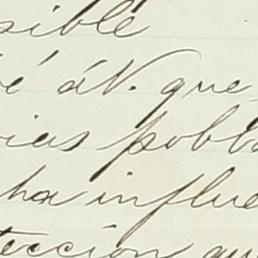 sible
é á V. que
ias pobla
ha influe
tección que